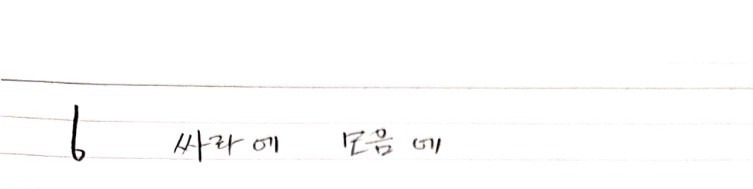 6 싸라에 모음에